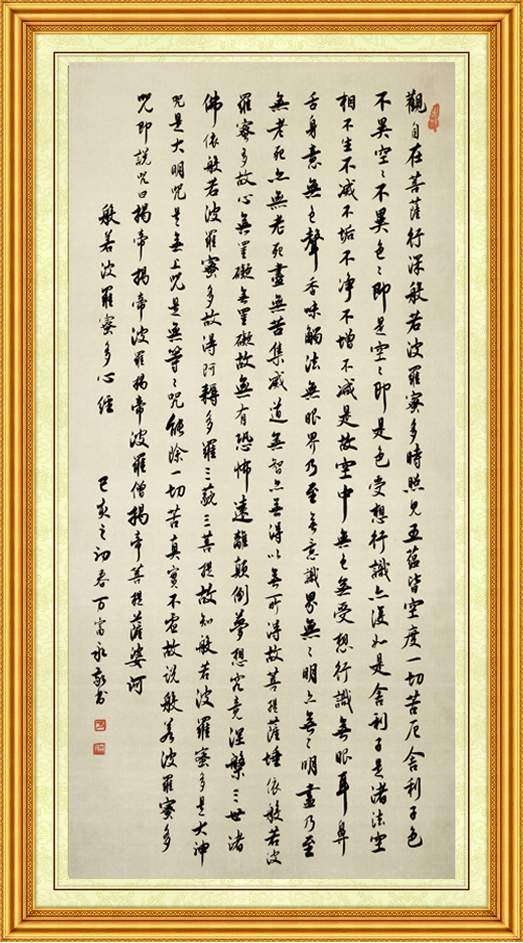 觀自在菩薩行深般若波羅蜜多時照見五蘊皆空度一切苦厄舍利子色
不異空〻不異色〻即是空〻即是色受想行識亦復如是舍利子是諸法空
相不生不滅不垢不净不增不减是故空中無色無受想行識無眼耳鼻
舌身意無色聲香味觸法無眼界乃至無意識界無〻明亦無〻明盡乃至
無老死亦無老死盡無苦集滅道無智亦無得以無所得故菩提薩埵依般若波
羅蜜多故心無罣礙無罣礙故無有恐怖遠離顛倒夢想究竟涅槃三世諸
佛依般若波羅蜜多故得阿耨多羅三藐三菩提故知般若波羅蜜多是大神
咒是大明咒是無上咒是無等〻咒能除一切苦真實不虛故説般若波羅蜜多
咒即説咒曰揭帝揭帝波羅揭帝波羅僧揭帝菩提薩婆訶
般若波羅蜜多心經 己亥之初春万富永敬书